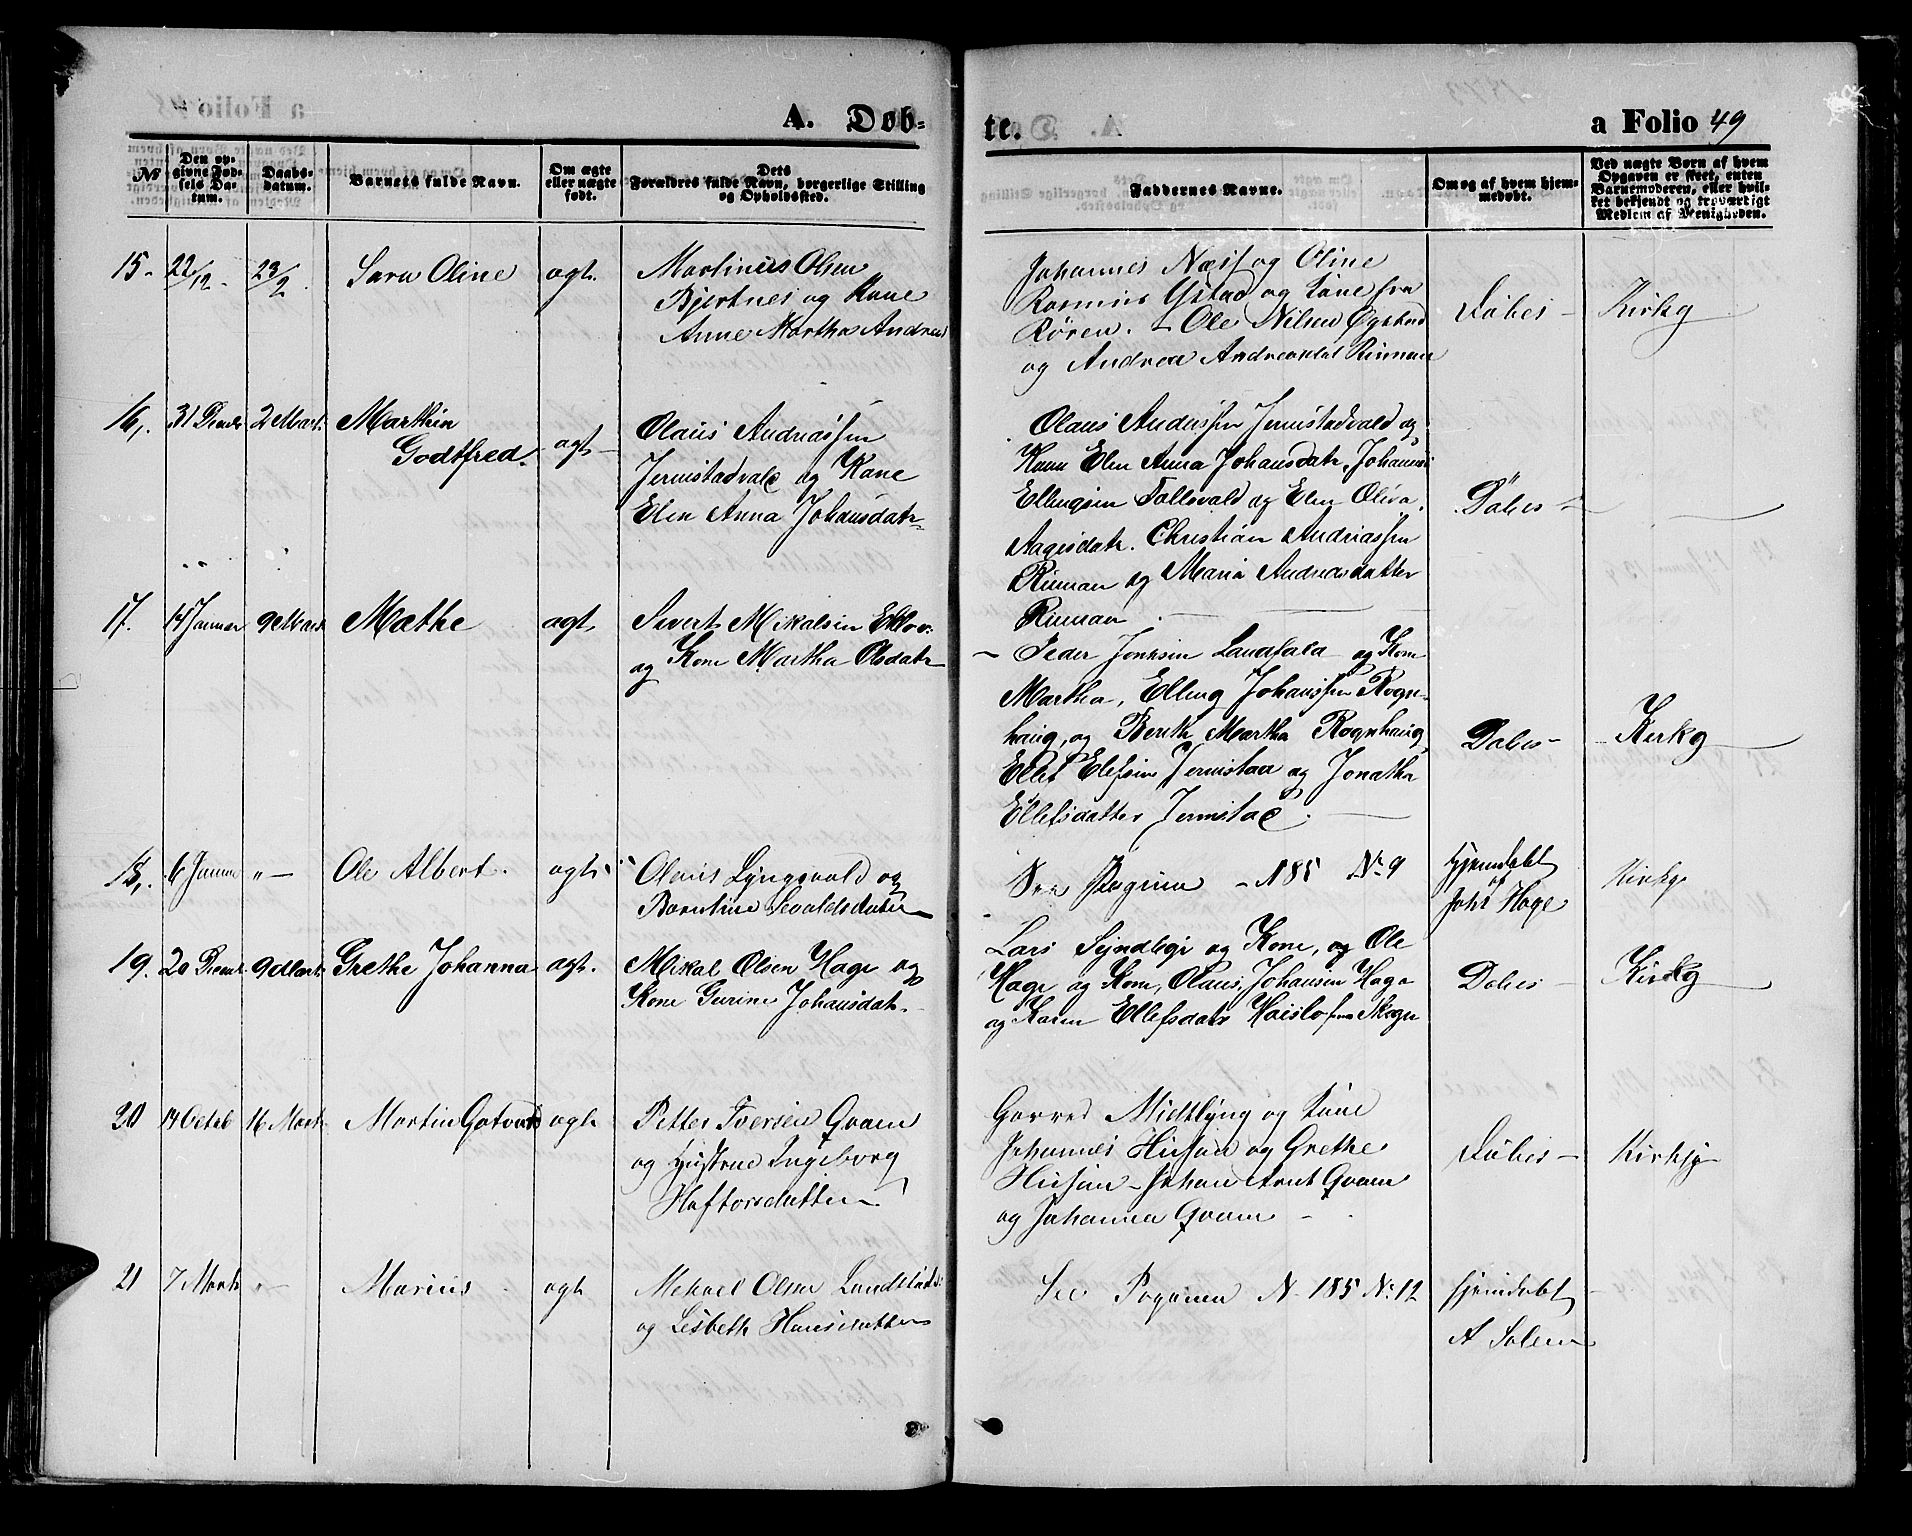 A. Døb=
te.
a Folio 49
№
Den op-
givne Fød-
sels Da-
tum.
Daabs-
datum.
Barnets fulde Navn.
Om ægte
eller uægte
født.
Dets
Forældres fulde Navn, borgerlige Stilling
og Opholdssted.
Faddernes Navne.
Om og af hvem hjem-
medøbt.
Ved uægte Børn af hvem
Opgaven er skeet, enten
Barnemoderen, eller hvil-
ket bekjendt og troværdigt
Medlem af Menigheden.
15. 22/12. 23/2. Sara Oline ægt.
Martinus Olsen
Bjertnes og Kone
Anne Martha Andreas
Johannes Næss og Oline
Rasmus Ystad og Kone fra
Røren. Ole Nilsen Øgstad
og Andrea Andreasdal Rinnan
Døbes Kirkg
16, 31 Decbr 2 Mart. Marthin
Godtfred. ægt
Olaus Andreassen
Jermstadvald og Kone
Elen Anna Johansdatr
Olaus Andersen Jermstadvald og
Kone Elen Anna Johansdatr, Johannes
Ellingsen Tollsvald og Elen Oliva
Aagesdatr. Christian Andreassen
Rinnan og Maria Andreasdatter
Rinnan
Døbes
17. 14 Januar 9 Mart Mathe ægt.
Sivert Mikalsen Eklo
og Kone Martha Olsdatr
Peder Jonsen Landfald og Kone
Martha, Elling Johanssen Rogn-
haug, og Berith Martha Rognhaug,
Ellef Elefsen Jermstad og Jonatha
Ellefsdatter Jermstad.
Døbes Kirkg
18, 6 Januar " Ole Albert. ægt.
Olaus Lyngsvald og
Berntine Sevaldsdatter
See Pagina 185 Nr 9
Hjemdøbt
af
Johs Hage
Kirkg
19. 20 Decmbr 9 Mart. Grethe Johanna ægt.
Mikal Olsen Hage og
Kone Gurine Johansdatr.
Lars Semdlegr og Kone, og Ole
Hage og Kone, Olaus Johansen Hage
og Karen Ellefsdatr Haislo fra Skogn
Døbes Kirkg
20 14 Octob 16 Mart Martin Gotvard ægt
Petter Iversen Qvam
og Hustrue Ingeborg
Haftorsdatter
Garred Midtlyng og Kone
Johannes Husan og Grethe
Husan Johan Arnt Qvam
og Johanna Qvam
Døbes Kirkg
21 7 Marts " Marius ægt
Mekael Olsen Lundstad
og Lisbeth Hansdatter
See Pagina N 185 Nr 12
Hjemdøbt
A Solem